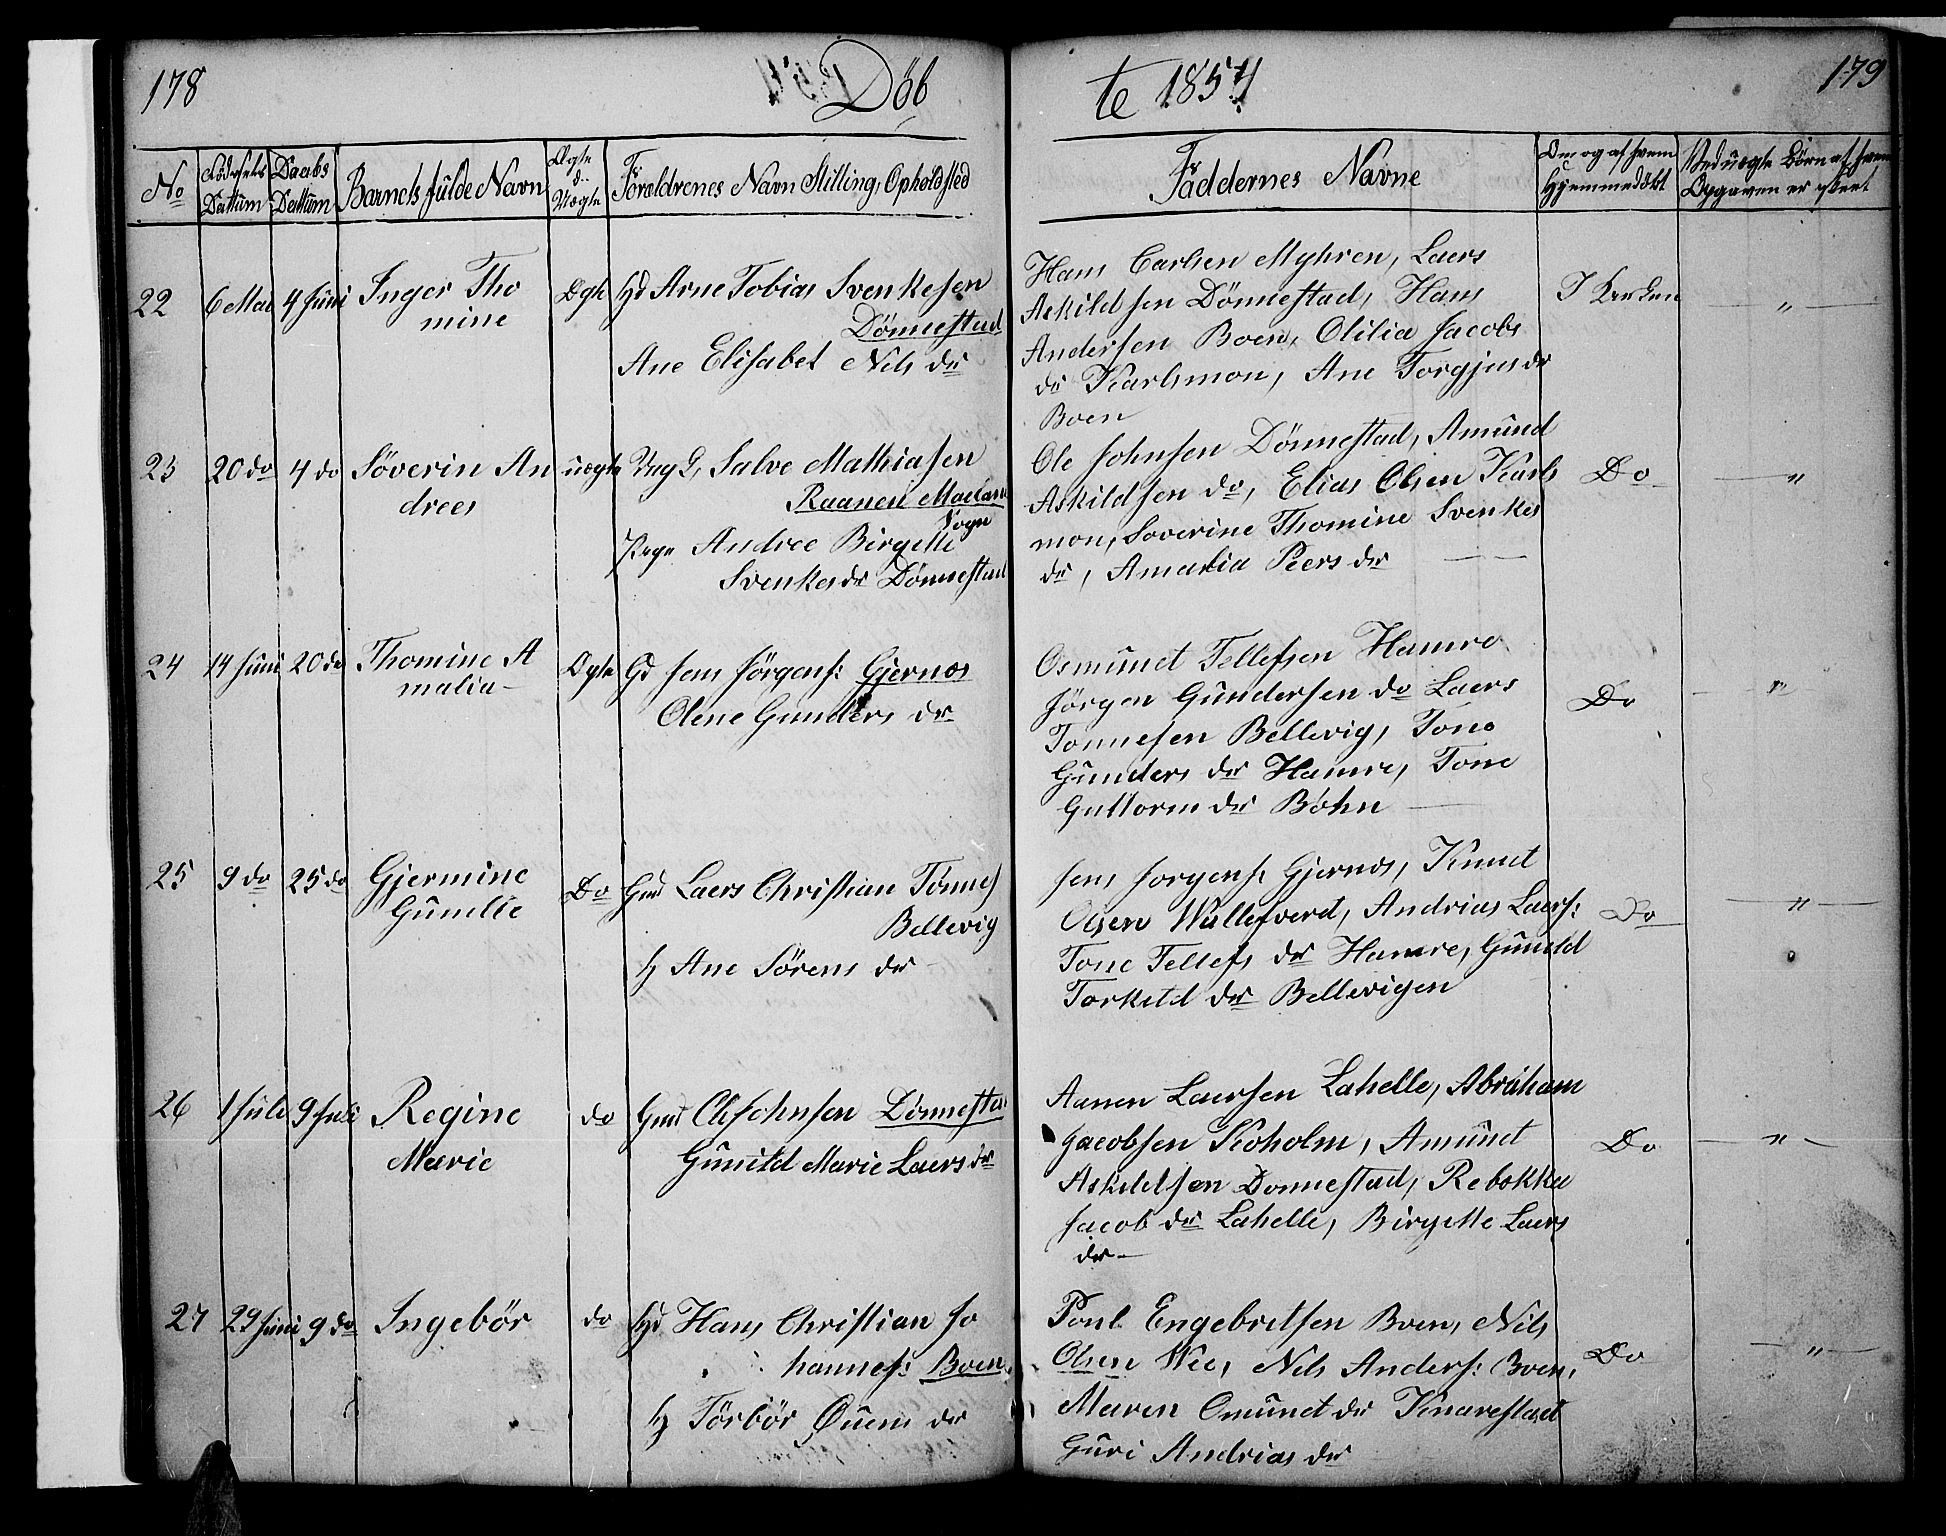 178
Döbte 1854
179
No
Födsels Dattum
Daabs Dattum
Barnets fulde Navn
Ægte o. Uægte
Forældrenes Navn Stilling, Opholdsted
Faddernes Navne
Om og af hvem Hjemmedöbt
Ved uægte Börn af hvem Opgaven er skeet
22
6 Mai
4 Juni
Inger Tho
mine
Ægte
Arne Tobias Svenkesen
Dönnestad
Ane Elisabet Nils dr
Hans Carlsen Myhren, Laers
Askildsen Dönnestad, Hans
Andersen Boen, Olilia Jacobs
dr Karlsmon, Ane Torgjus dr
Boen
I Kerken
"
23
20 do
4 do
Söverin An
drees
uægte
Ung C, Salve Mathiasen
Raanen
Sogn
Pige Andree Birgette
Svenkes dr Dönnestad
Ole Johnsen Dönnestad, Amund
Askildsen do, Elias Olsen Karls
mon, Soverine Thomine Svenkes
dr, Amalia Peers dr
Do
"
24
14 Juni
20 do
Thomine A
malia
Ægte
Gd Jens Jörgens: Gjernæs
Olene Gunders dr
Osmund Tellefsen Hamre
Jörgen Gundersen do Laers
Tonnesen Bellevig, Tone
Gunders dr Hamre, Tone
Guttorm dr Böhn
Do
"
25
9 do
25 do
Gjermine
Gunelle
Do
Gmd Laers Christian Tönnes
Bellevig
H Ane Sörens dr
Jens Jorgens: Gjernæs, Knud
Olsen Wallesverd, Andrias Laers:
Tone Tellefs dr Hamre, Gunild
Torkild dr Bellevigen
Do
"
26
1 Juli
9 Juli
Regine
Marie
do
Gmd Ole Johnsen Dönnestad
Gunild Marie Laers dr
Aanen Laersen Lahelle, Abraham
Jacobsen Koholm, Amund
Askildsen Donnestad, Rebekka
Jacob dr Lahelle, Birgette Laers
dr
Do
"
27
29 Juni
9 do
Ingebör
do
Hans Christian Jo
hannes: Boen
H Törbör dr
Poul Engebretsen Boen, Nils
Olsen Wee, Nils Anders: Boen,
Maren Omund dr Knarestad
Guri Andrias dr
Do
"